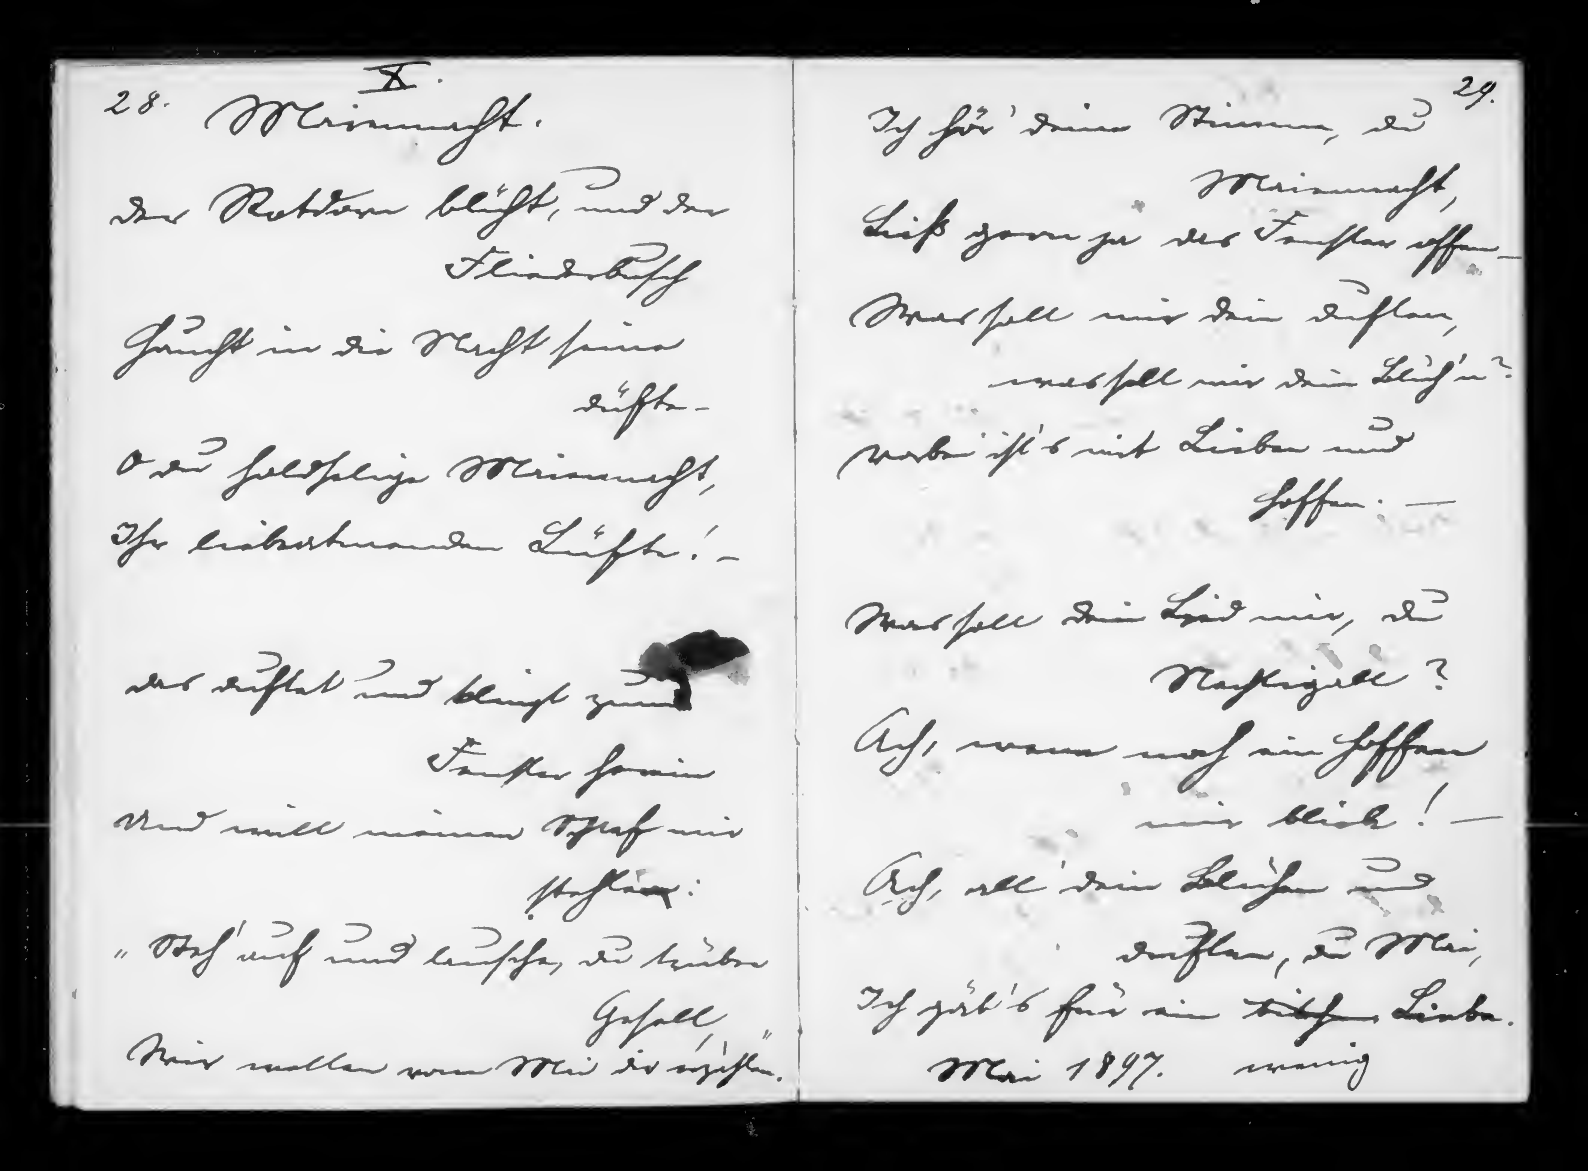 X.
28. Maiennacht.
der Rotdorn blüht, und der
Fliederbusch
haucht in die Nacht seine
düfte –
O du holdselige Maiennacht,
Ihr liebeatmenden Lüfte! –
das duftet und klingt zum
Fenster herein
und will meinen Schlaf mir
stehlen:
„Steh' auf und lausche, du trüber
Gesell,
Wir wollen vom Mai dir erzählen."
29.
Ich hör' deine Stimme, du
Maiennacht,
Ließ gern ja das Fenster offen –
Was soll mir dein duften,
was soll mir dein Blüh'n?
vorbei ist's mit Lieben und
Hoffen. –
Was soll dein Lied mir, du
Nachtigall?
Ach, wenn noch ein Hoffen
mir bliebe! –
Ach, all' dein Blühen und
duften, du Mai,
Ich gäb's für ein bißchen Liebe.
Mai 1897. wenig